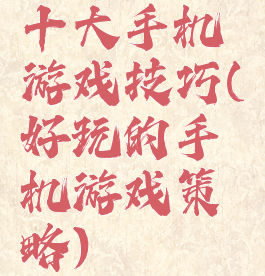 十大手机
游戏技巧(
好玩的手
机游戏策
略)